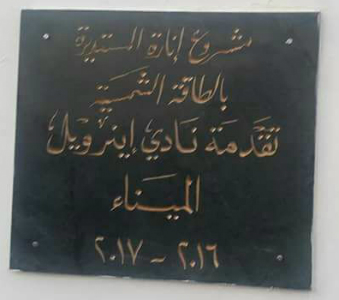 مشروع إنارة المستديرة
بالطاقة الشمسية
تقدمة نادي إينرويل
الميناء
٢٠١٦ - ٢٠١٧